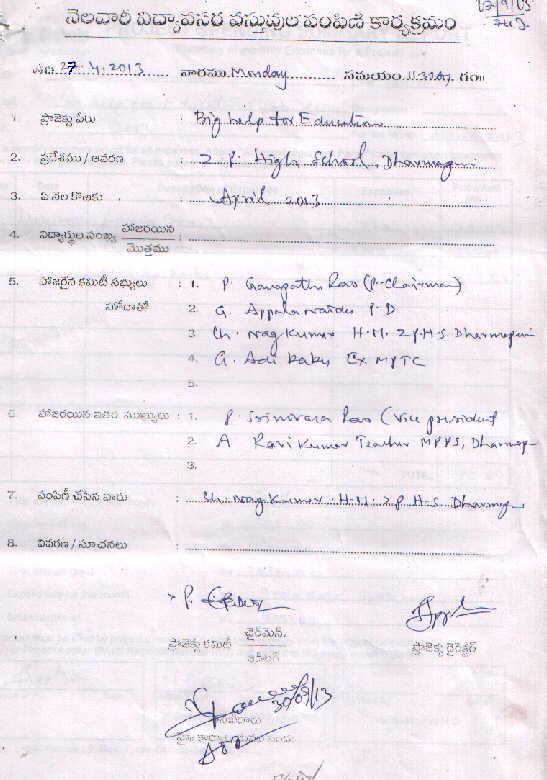 నెలవారీ విద్యావసర వస్తువుల పంపిణి కార్యక్రమం
తేది 27.4.2013 వారము Monday సమయం గం॥
1. ప్రాజెక్టు పేరు : Big help for Education
2. ప్రదేశము / ఆవరణ : Z.P. High School, Dharmapuri
3. ఏ నెల కొఱకు : April 2013
4. విద్యార్థుల సంఖ్య హాజరయిన / మొత్తము :
5. హాజరైన కమిటీ సభ్యులు : 1. P. Ganapathi Rao (P. Chairman)
హోదాతో 2. G. Appalanaidu P.D
3. Ch. Nagkumar H.M. Z.P.H.S Dharmapuri
4. G. Adi Babu Ex MPTC
5.
6. హాజరయిన ఇతర సభ్యులు : 1. P. Srinivasa Rao (Vice president
2. A Ravi Kumar Teacher MPPS, Dharmap
3.
7. పంపిణీ చేసిన వారు : Ch. Nag Kumar. H.M. Z.P.H.S Dharmap
8. వివరణ / సూచనలు :
ప్రాజెక్టు కమిటీ చైర్‌మెన్.
ప్రాజెక్టు డైరెక్టర్